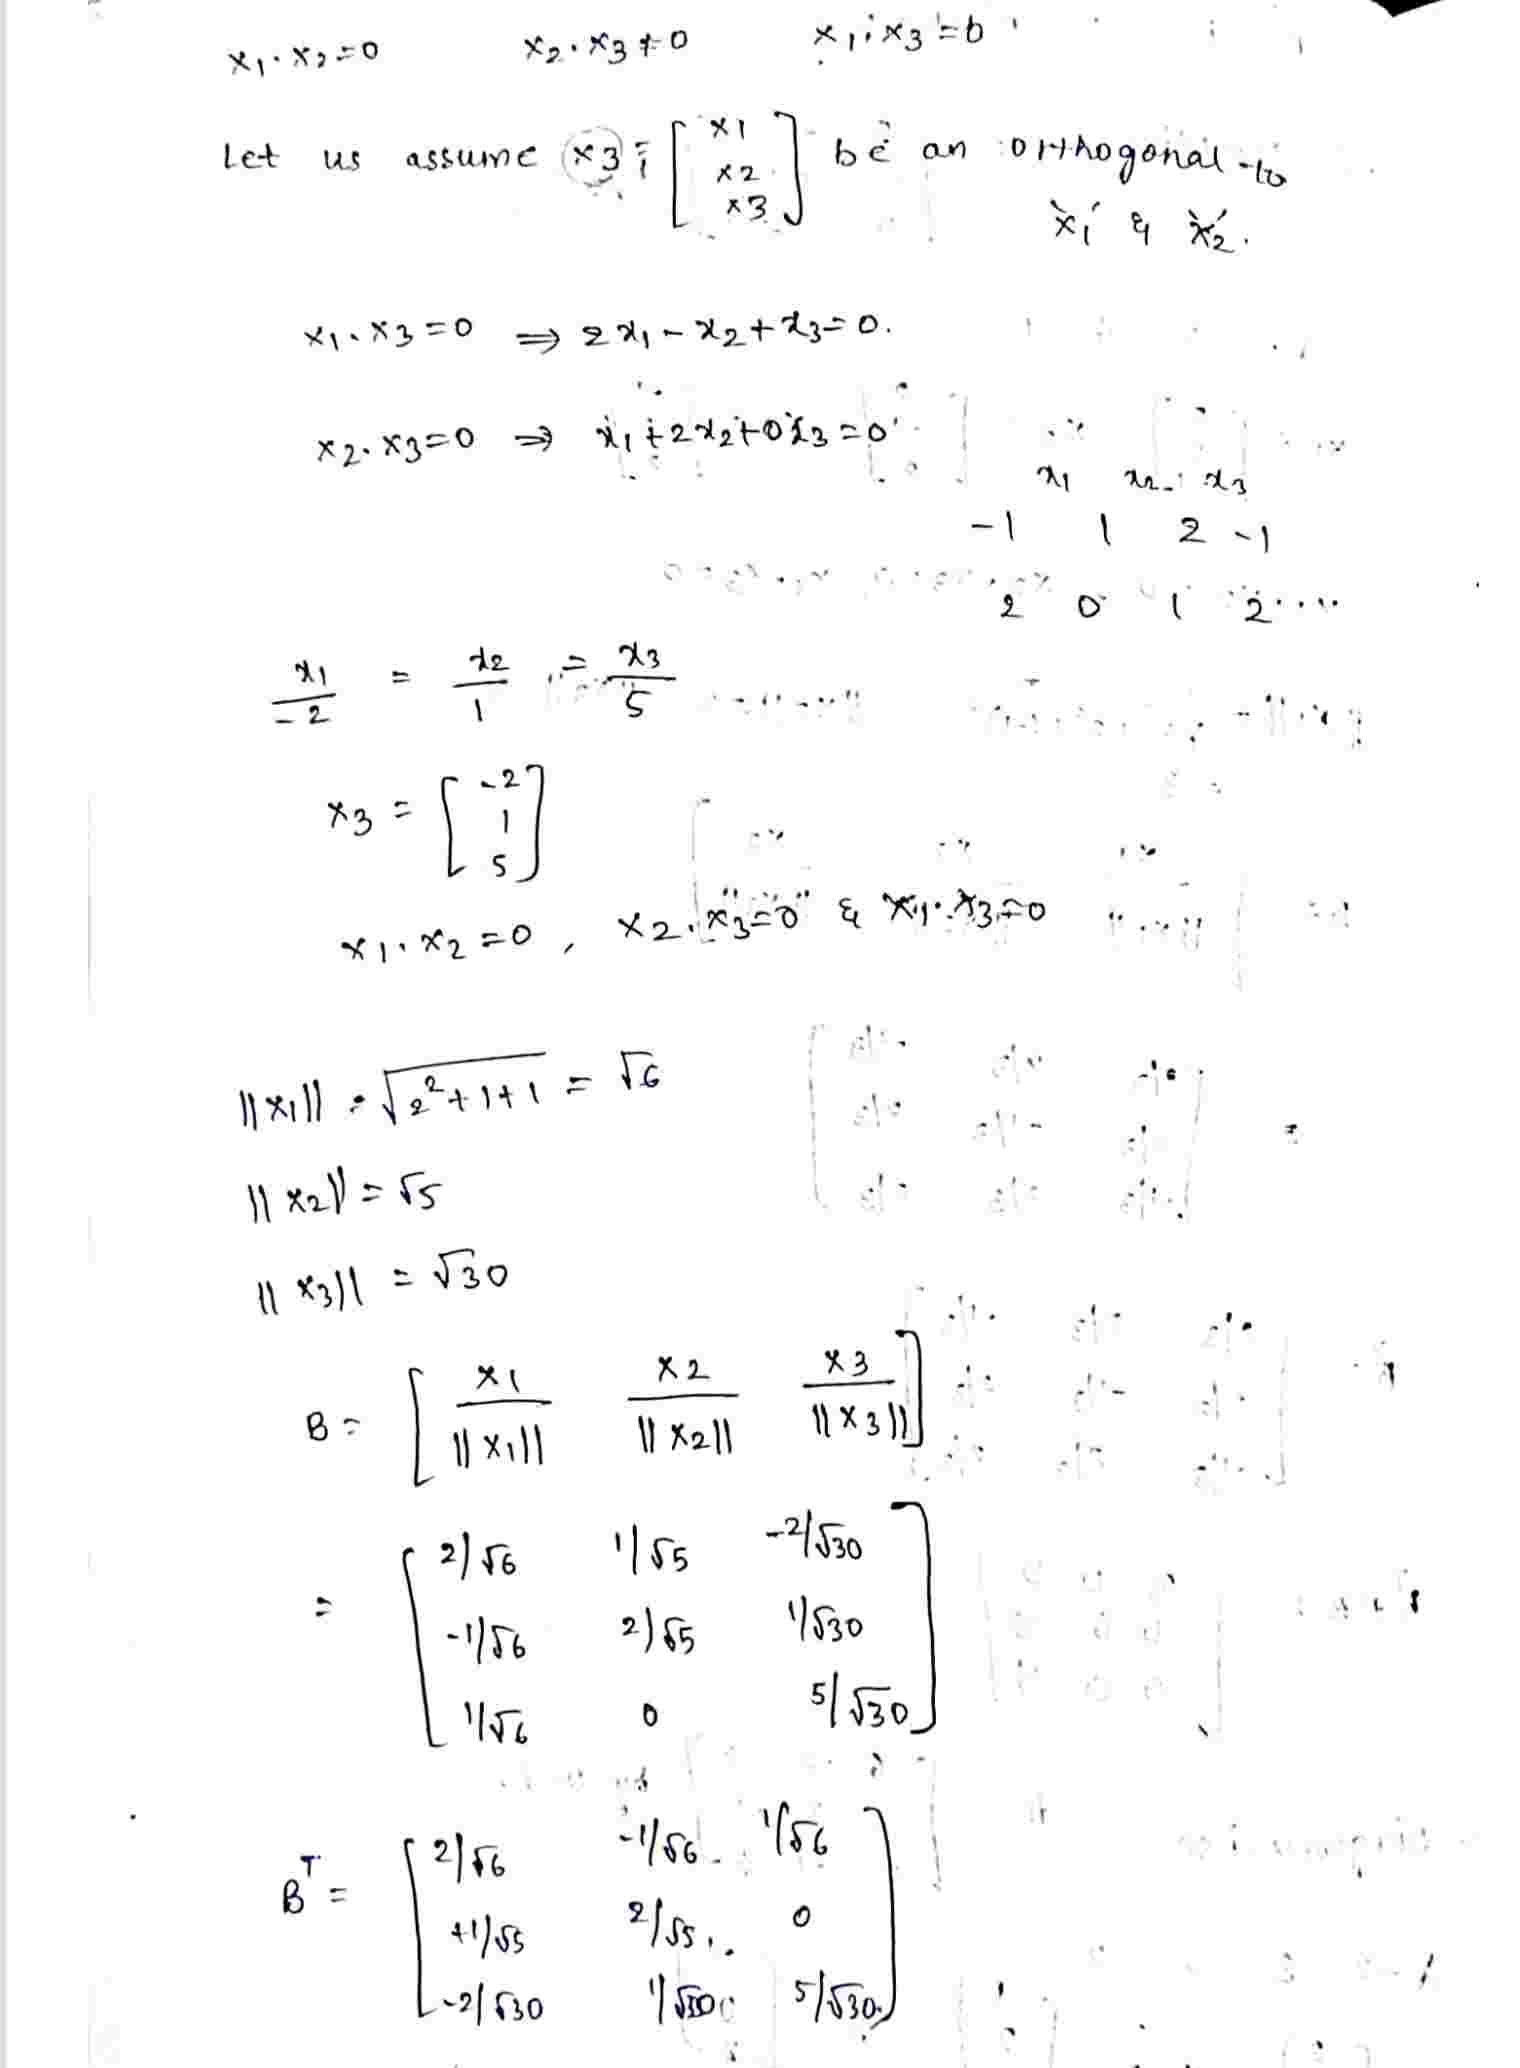 x1·x2=0 x2·x3≠0 x1·x3=0
Let us assume x3 = [x1 x2 x3] be an orthogonal to
x1 & x2.
x1·x3=0 ⇒ 2x1-x2+x3=0.
x2·x3=0 ⇒ x1+2x2+0x3=0
x1 x2 x3
-1 1 2 -1
2 0 1 2
x1/-2 = x2/1 = x3/5
x3 = [-2 1 5]
x1·x2=0, x2·x3=0 & x1·x3=0
||x1|| = √2²+1+1 = √6
||x2|| = √5
||x3|| = √30
B = [x1/||x1|| x2/||x2|| x3/||x3||]
= [2/√6 1/√5 -2/√30
-1/√6 2/√5 1/√30
1/√6 0 5/√30]
Bᵀ = [2/√6 -1/√6 1/√6
+1/√5 2/√5 0
-2/√30 1/√30 5/√30]